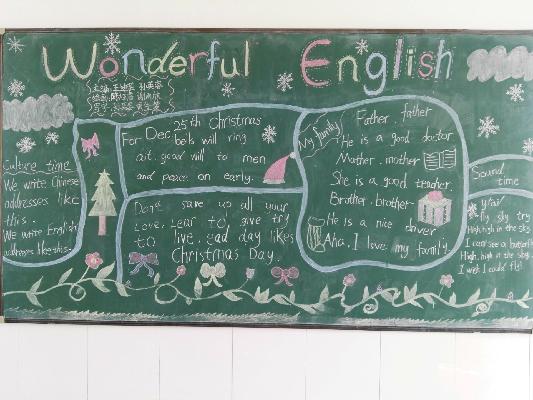 Wonderful English
Culture time
We write Chinese
addresses like
this.
We write English
addresses like this.
For Dec 25th Christmas
bels will ring
ait. good will to men
and peace on early.
Dona save up all your
Love. Lear to give try
to live. ead day likes
Christmas Day.
My family!
Father . father
He is a good doctor
Mother . mother
She is a good teacher.
Brother. brother
He is a nice driver
Aha. I love my family.
Sound
time
fly sky try
High, high in the sky.
I can see a butterfly
High, high in the sky,
I wish I could fly!